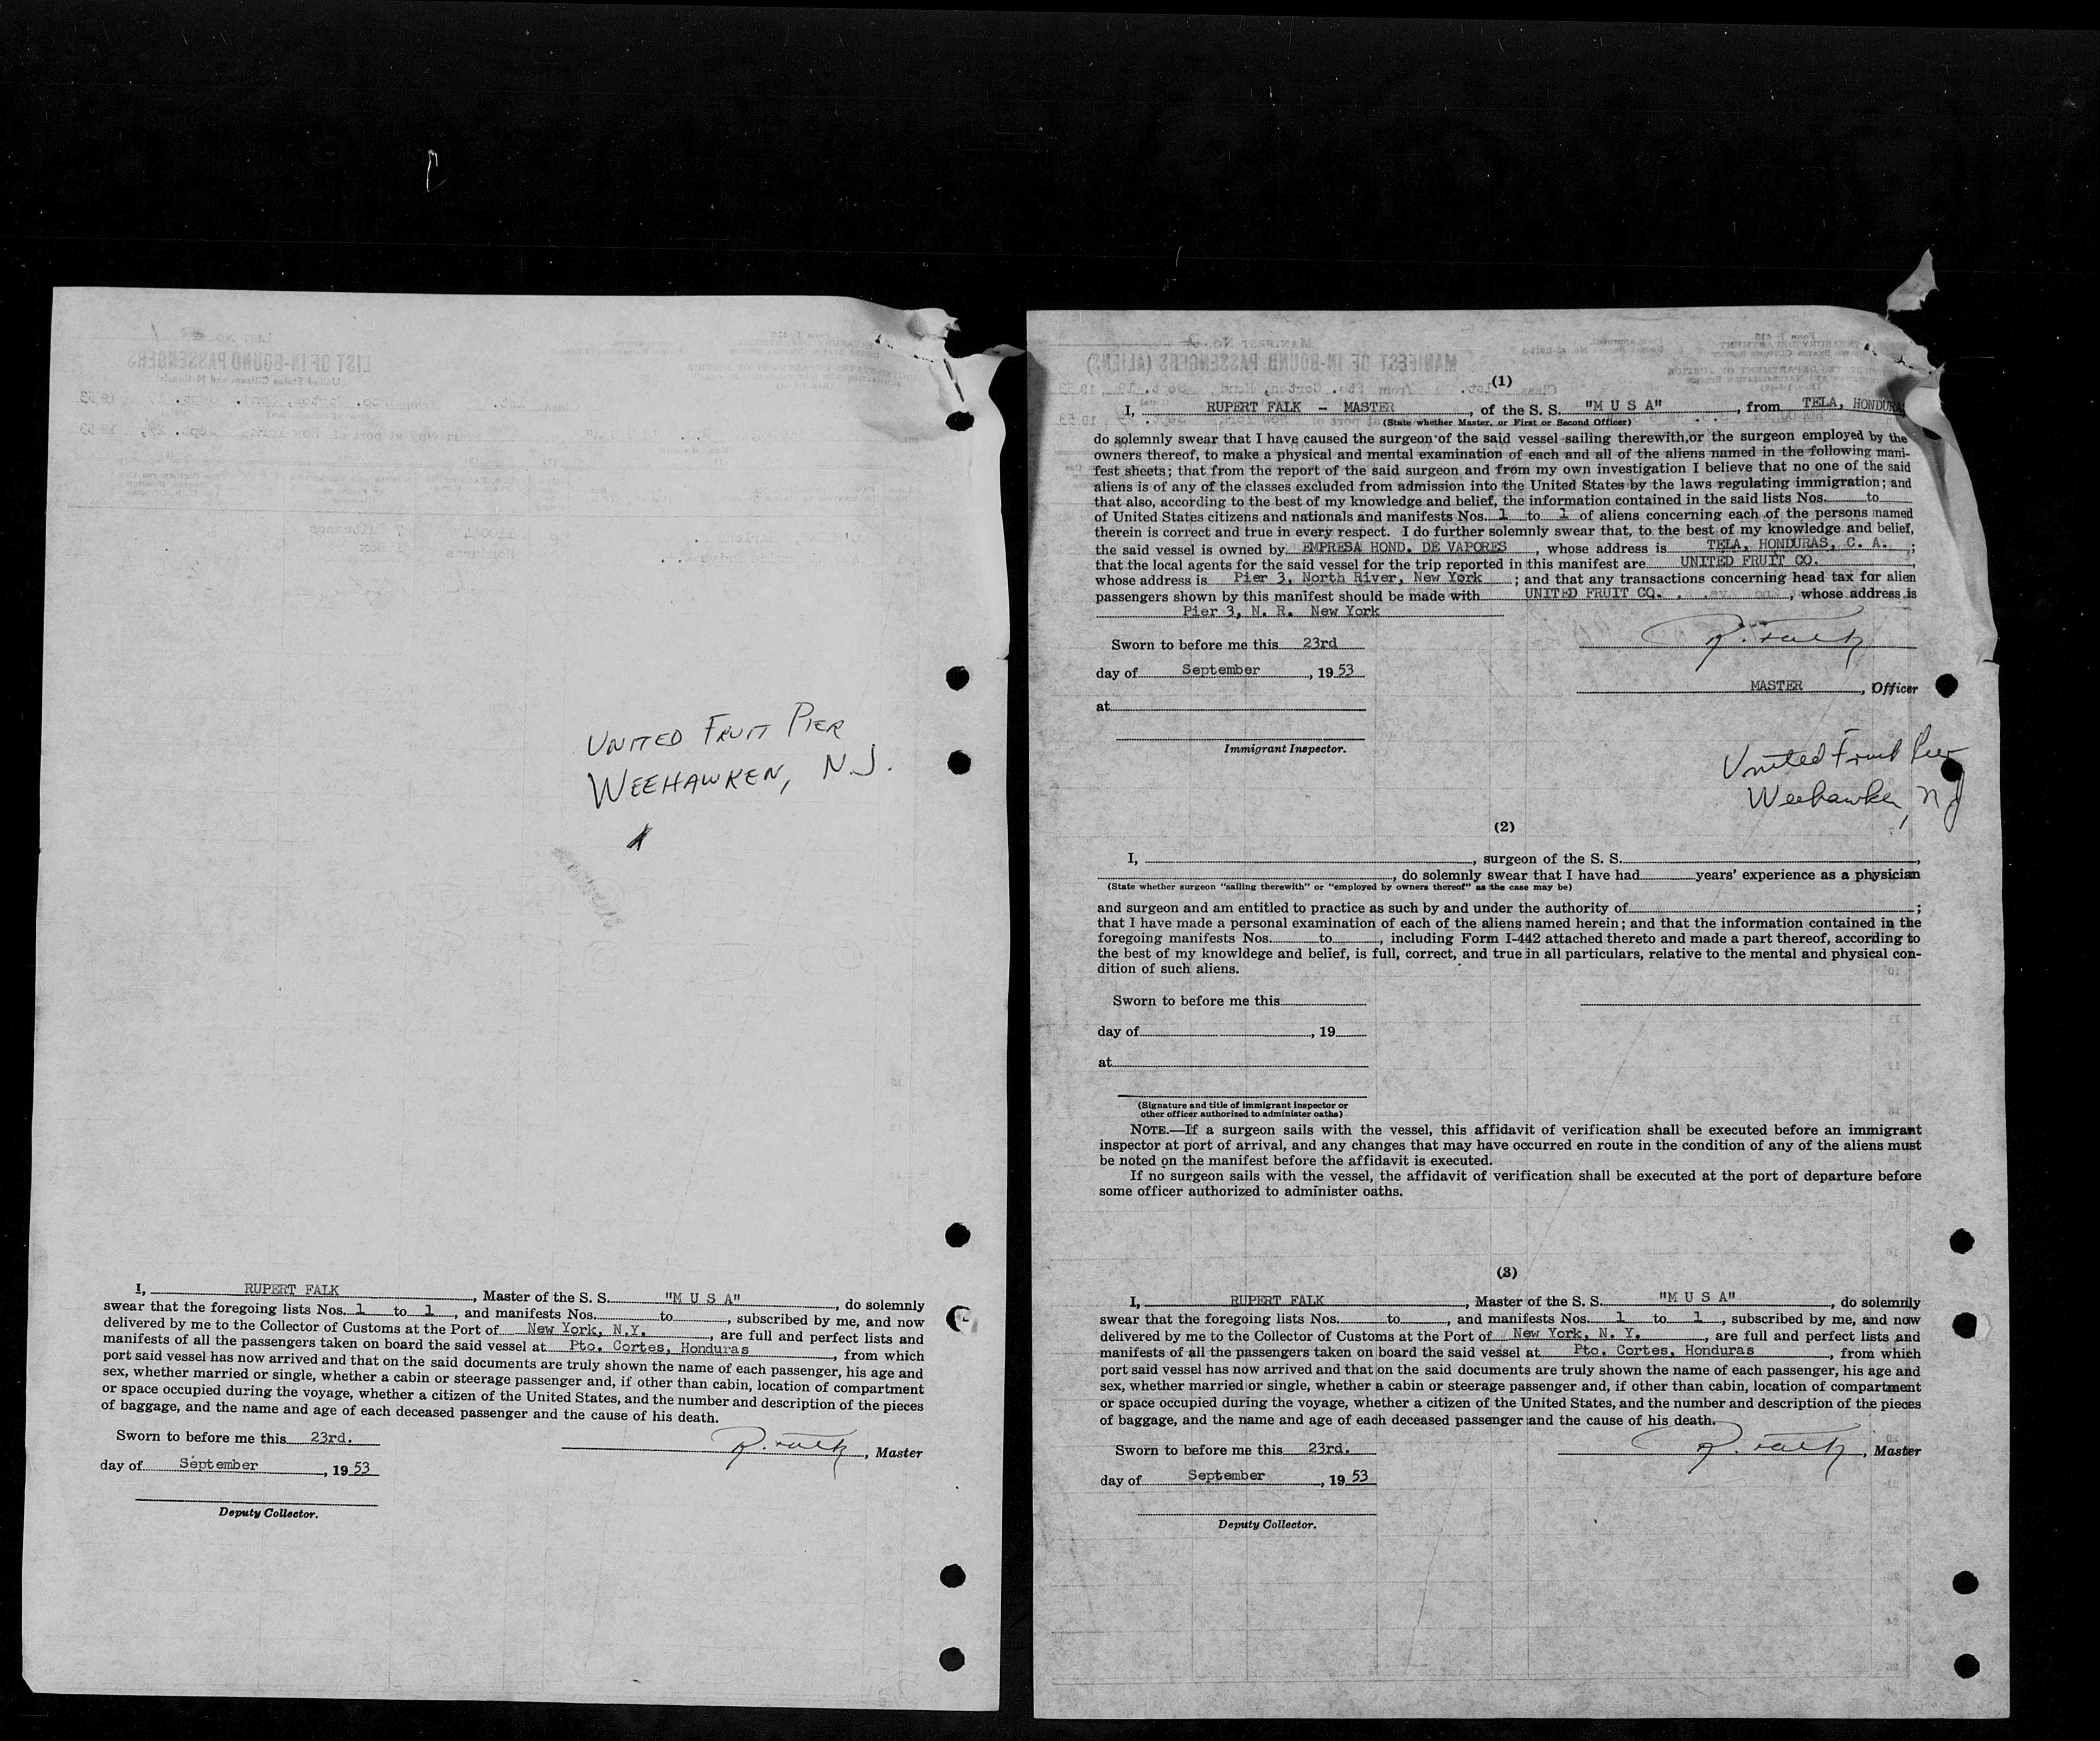 UNITED FRUIT PIER
WEEHAWKEN, N.J.
I, RUPERT FALK, Master of the S. S. "M U S A", do solemnly
swear that the foregoing lists Nos. 1 to 1, and manifests Nos. to , subscribed by me, and now
delivered by me to the Collector of Customs at the Port of New York, N.Y., are full and perfect lists and
manifests of all the passengers taken on board the said vessel at Pto. Cortes, Honduras, from which
port said vessel has now arrived and that on the said documents are truly shown the name of each passenger, his age and
sex, whether married or single, whether a cabin or steerage passenger and, if other than cabin, location of compartment
or space occupied during the voyage, whether a citizen of the United States, and the number and description of the pieces
of baggage, and the name and age of each deceased passenger and the cause of his death.
Sworn to before me this 23rd.
R. Falk, Master
day of September, 19 53
Deputy Collector.
MANIFEST OF IN-BOUND PASSENGERS (ALIENS)
LIST OF IN-BOUND PASSENGERS
(1)
I, RUPERT FALK - MASTER, of the S. S. "M U S A", from TELA, HONDURA
(State whether Master, or First or Second Officer)
do solemnly swear that I have caused the surgeon of the said vessel sailing therewith, or the surgeon employed by the
owners thereof, to make a physical and mental examination of each and all of the aliens named in the following mani-
fest sheets; that from the report of the said surgeon and from my own investigation I believe that no one of the said
aliens is of any of the classes excluded from admission into the United States by the laws regulating immigration; and
that also, according to the best of my knowledge and belief, the information contained in the said lists Nos. to
of United States citizens and nationals and manifests Nos. 1 to 1 of aliens concerning each of the persons named
therein is correct and true in every respect. I do further solemnly swear that, to the best of my knowledge and belief,
the said vessel is owned by EMPRESA HOND. DE VAPORES, whose address is TELA, HONDURAS, C. A. ;
that the local agents for the said vessel for the trip reported in this manifest are UNITED FRUIT CO.,
whose address is Pier 3, North River, New York; and that any transactions concerning head tax for alien
passengers shown by this manifest should be made with UNITED FRUIT CO., whose address is
Pier 3, N. R. New York
Sworn to before me this 23rd
R. Falk
day of September, 19 53
MASTER, Officer
at
Immigrant Inspector.
United Fruit Pier
Weehawken, NJ
(2)
I, , surgeon of the S. S. ,
, do solemnly swear that I have had years' experience as a physician
(State whether surgeon "sailing therewith" or "employed by owners thereof" as the case may be)
and surgeon and am entitled to practice as such by and under the authority of ;
that I have made a personal examination of each of the aliens named herein; and that the information contained in the
foregoing manifests Nos. to , including Form I-442 attached thereto and made a part thereof, according to
the best of my knowldege and belief, is full, correct, and true in all particulars, relative to the mental and physical con-
dition of such aliens.
Sworn to before me this
day of , 19
at
(Signature and title of immigrant inspector or
other officer authorized to administer oaths)
NOTE.—If a surgeon sails with the vessel, this affidavit of verification shall be executed before an immigrant
inspector at port of arrival, and any changes that may have occurred en route in the condition of any of the aliens must
be noted on the manifest before the affidavit is executed.
If no surgeon sails with the vessel, the affidavit of verification shall be executed at the port of departure before
some officer authorized to administer oaths.
(3)
I, RUPERT FALK, Master of the S. S. "M U S A", do solemnly
swear that the foregoing lists Nos. to , and manifests Nos. 1 to 1, subscribed by me, and now
delivered by me to the Collector of Customs at the Port of New York, N. Y., are full and perfect lists and
manifests of all the passengers taken on board the said vessel at Pto. Cortes, Honduras, from which
port said vessel has now arrived and that on the said documents are truly shown the name of each passenger, his age and
sex, whether married or single, whether a cabin or steerage passenger and, if other than cabin, location of compartment
or space occupied during the voyage, whether a citizen of the United States, and the number and description of the pieces
of baggage, and the name and age of each deceased passenger and the cause of his death.
Sworn to before me this 23rd.
R. Falk, Master
day of September, 19 53
Deputy Collector.